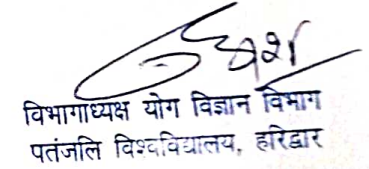 विभागाध्यक्ष योग विज्ञान विभाग
पतंजलि विश्वविद्यालय, हरिद्वार